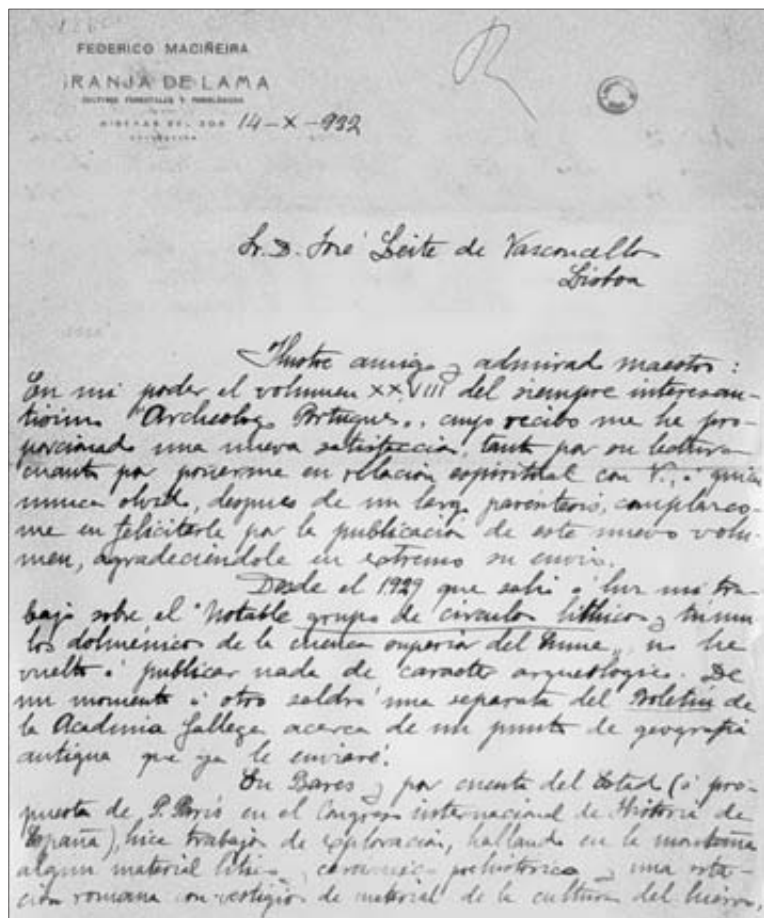 FEDERICO MACIÑEIRA
GRANJA DE LAMA
CULTIVOS FORESTALES Y POMOLÓGICOS
14-X-932
Sr. D. José Leite de Vasconcellos
Lisboa
Ilustre amigo y admirado maestro:
En mi poder el volumen XXVIII del siempre interesan-
tísimo "Archeologo Portugues", cuyo recibo me ha pro-
porcionado una nueva satisfacción, tanto por su lectura
cuanto por ponerme en relación espiritual con V., á quien
nunca olvido, despues de un largo paréntesis, complazco-
me en felicitarle por la publicación de este nuevo volu-
men, agradeciéndole en extremo su envio.
Desde el 1929 que salió á luz mi tra-
bajo sobre el "Notable grupo de círculos líthicos y túmu-
los dolménicos de la cuenca superior del Eume", no he
vuelto á publicar nada de caracter arqueologico. De
un momento á otro saldrá una separata del Boletín de
la Academia Gallega acerca de un punto de geografia
antigua que ya le enviaré.
En Bares y por cuenta del Estado (á pro-
puesta de P. Paris en el Congreso internacional de Historia de
España), hice trabajos de exploración, hallando en la montaña
algun material lítico, ceramica prehistorica y una esta-
ción romana con vestigios de material de la cultura del hierro,